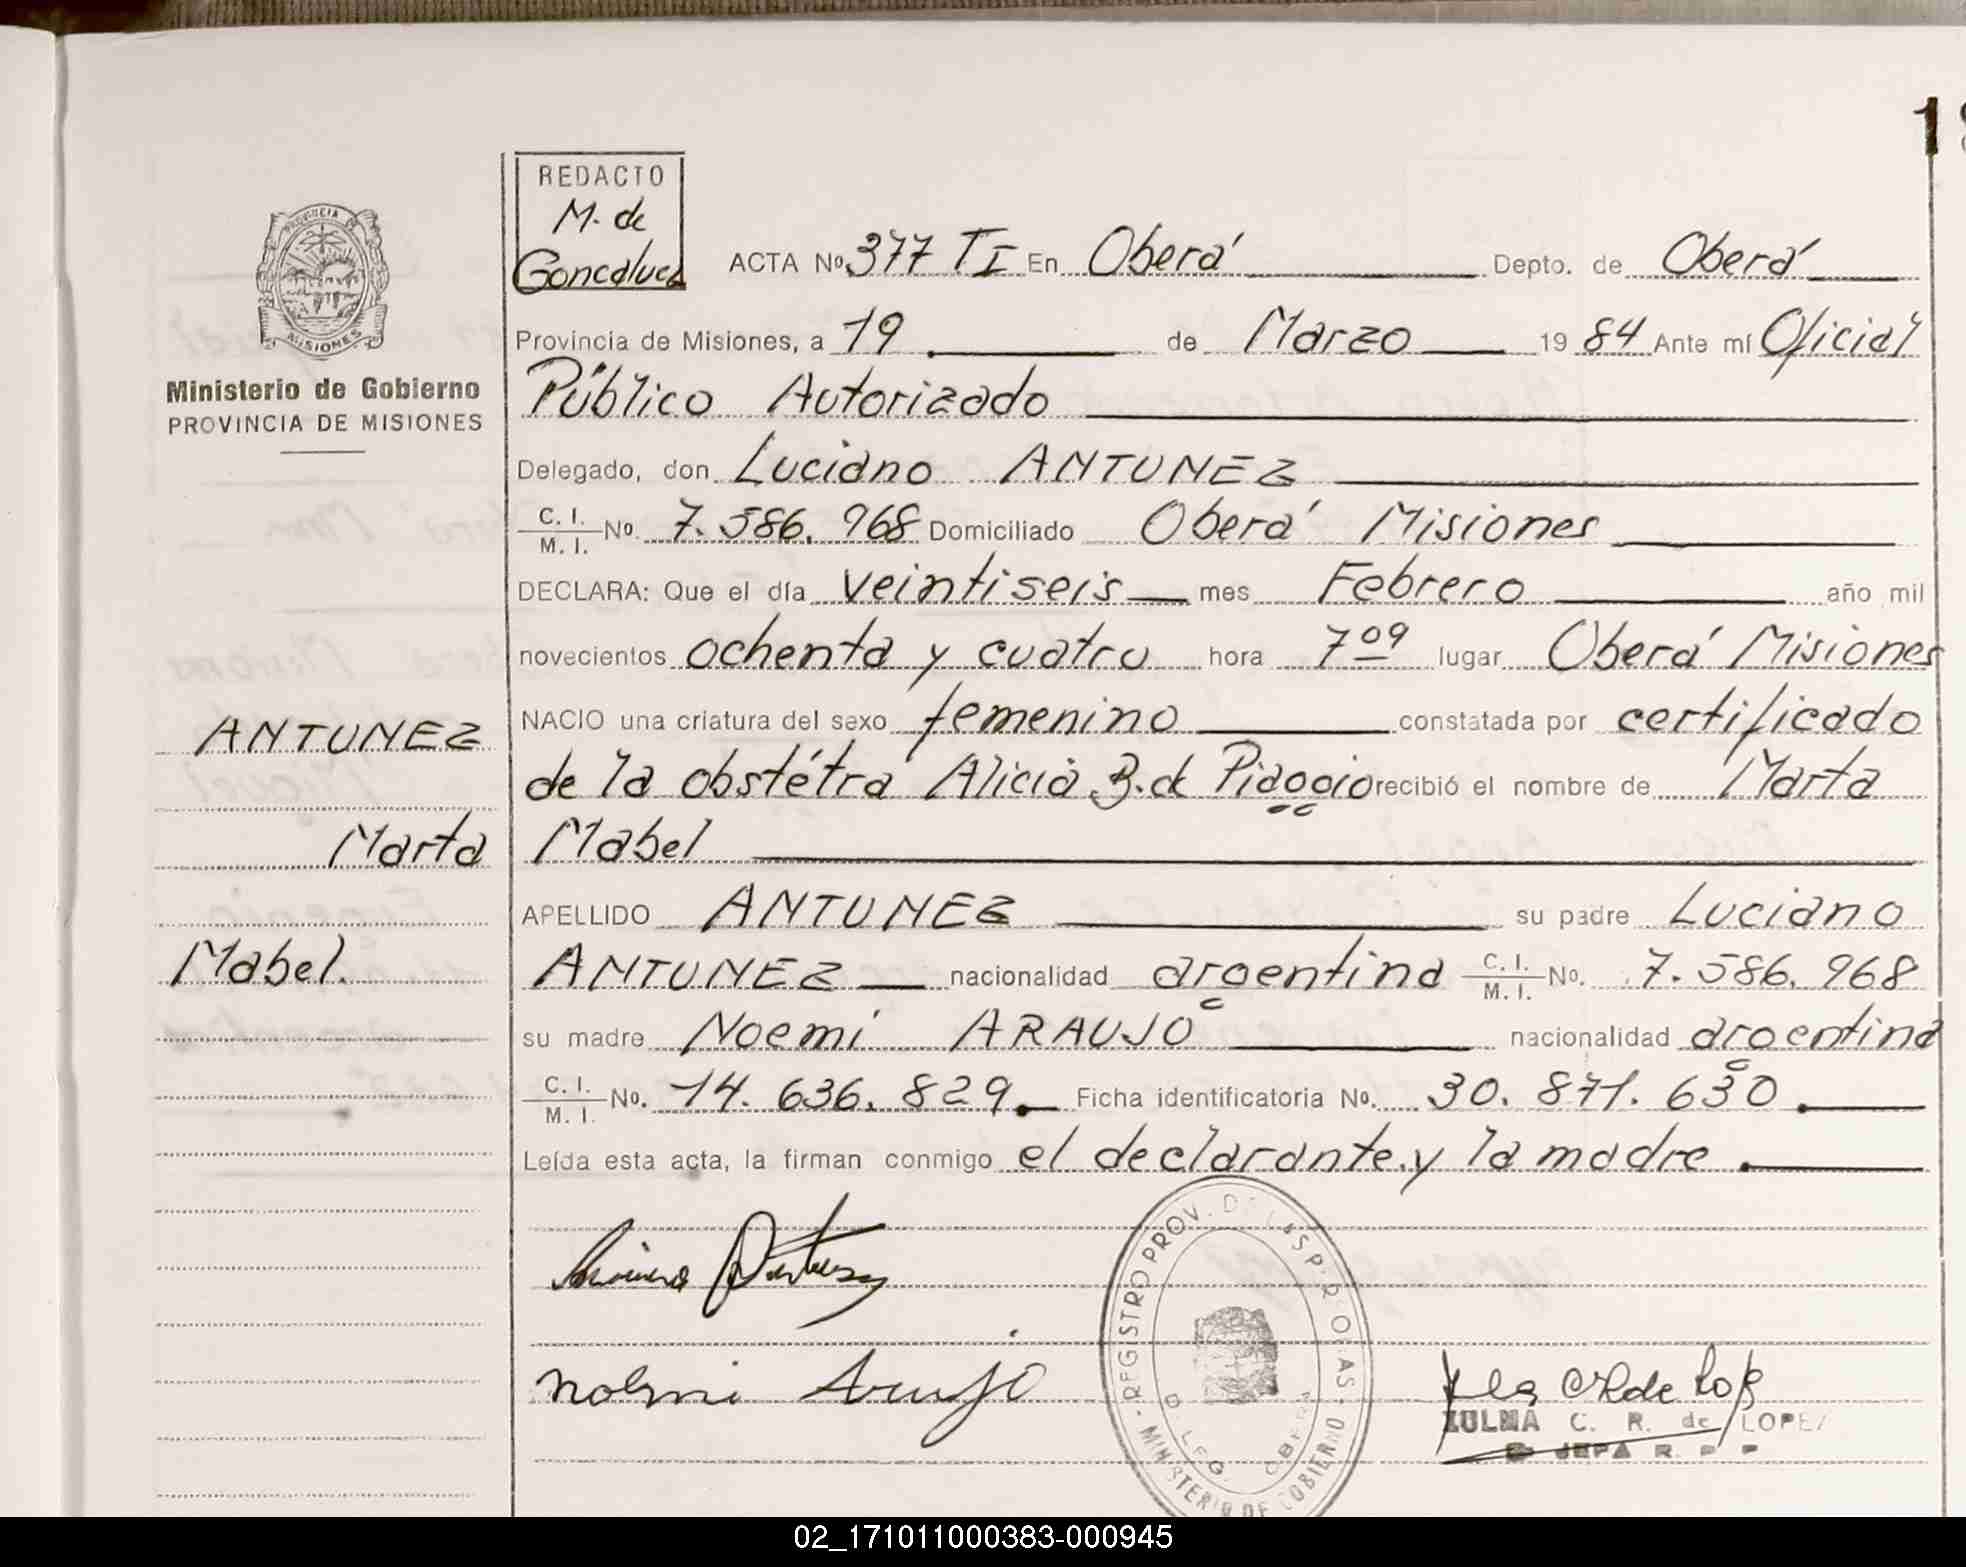 18
REDACTO
M. de
Goncalvez
ACTA No. 377 TI En Oberá Depto. de Oberá
Provincia de Misiones, a 19 de Marzo 1984 Ante mí Oficial
Público Autorizado
Delegado, don Luciano ANTUNEZ
C. I. / M. I. No. 7.586.968 Domiciliado Oberá Misiones
DECLARA: Que el día veintiseis mes Febrero año mil
novecientos ochenta y cuatro hora 7 09 lugar Oberá Misiones
NACIO una criatura del sexo femenino constatada por certificado
de la obstétra Alicia B. de Piaggio recibió el nombre de Marta
Mabel
APELLIDO ANTUNEZ su padre Luciano
ANTUNEZ nacionalidad argentina C. I. / M. I. No. 7.586.968
su madre Noemí ARAUJO nacionalidad argentina
C. I. / M. I. No. 14.636.829. Ficha identificatoria No. 30.871.630.
Leída esta acta, la firman conmigo el declarante y la madre.
PROVINCIA DE
MISIONES
Ministerio de Gobierno
PROVINCIA DE MISIONES
ANTUNEZ
Marta
Mabel.
Noemi Araujo
REGISTRO PROV. DE LAS PERSONAS
MINISTERIO DE GOBIERNO
DELEG. OBERA
ZULMA C. R. de LOPEZ
JEFA R. P. P.
02_171011000383-000945